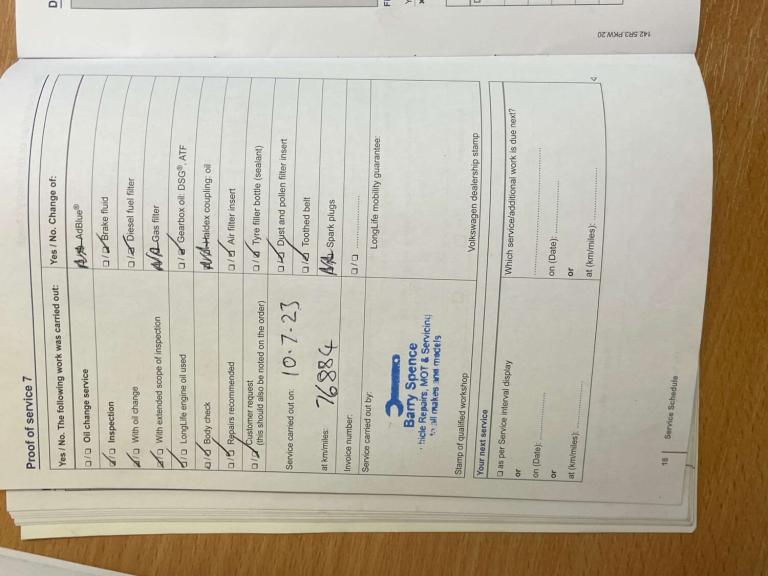 Proof of service 7
Yes / No. The following work was carried out:
Oil change service
Inspection
With oil change
With extended scope of inspection
LongLife engine oil used
Body check
Repairs recommended
Customer request
(this should also be noted on the order)
Service carried out on: 10.7.23
at km/miles: 76884
Invoice number:
Service carried out by:
Barry Spence
hicle Repairs, MOT & Servicing
to all makes and models
Stamp of qualified workshop
Yes / No. Change of:
N/A AdBlue®
Brake fluid
Diesel fuel filter
N/A Gas filter
Gearbox oil: DSG®, ATF
N/A Haldex coupling: oil
Air filter insert
Tyre filler bottle (sealant)
Dust and pollen filter insert
Toothed belt
Spark plugs
LongLife mobility guarantee:
Volkswagen dealership stamp
Your next service
as per Service interval display
or
on (Date):
or
at (km/miles):
Which service/additional work is due next?
on (Date):
or
at (km/miles):
18 | Service Schedule
142.5R3.PKW.20